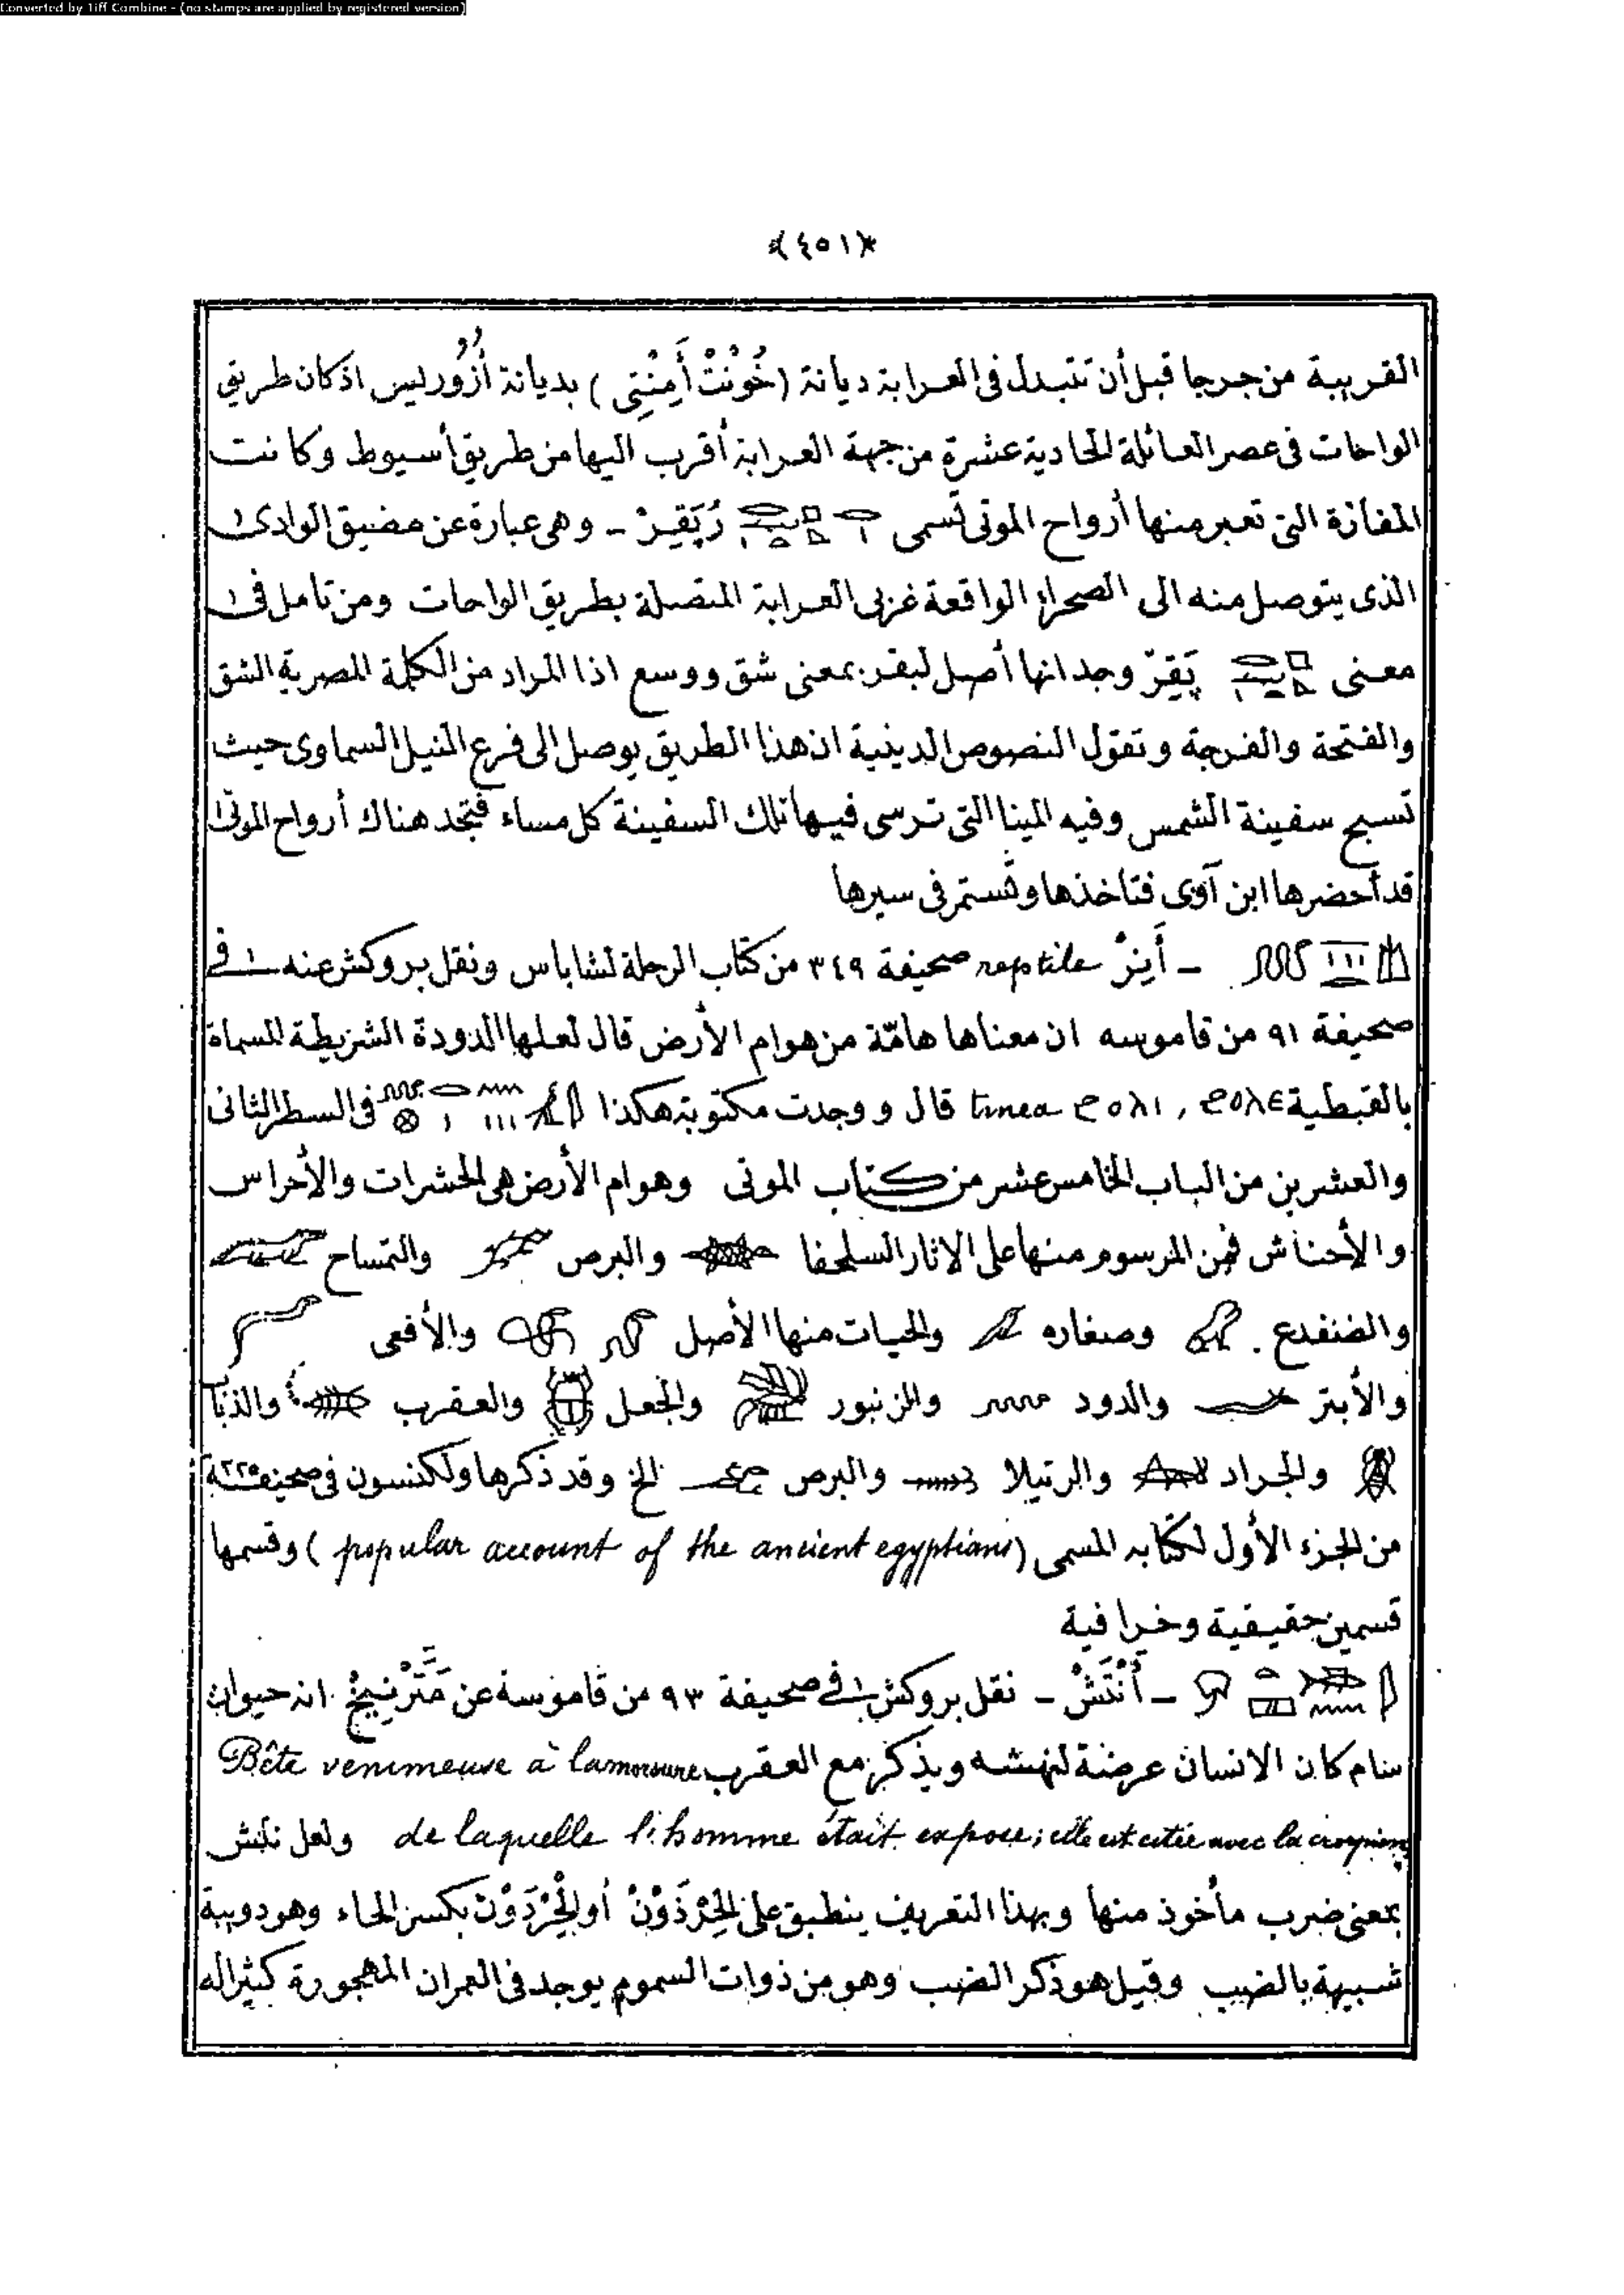 Converted by Tiff Combine - (no stamps are applied by registered version)
﴿٤٥١﴾
القريبة من جرجا قبل أن تتبدل فى العرابة ديانة (خُونْتْ أَمِنْتِى) بديانة أُزُوريس اذ كان طريق
الواحات فى عصر العائلة الحادية عشرة من جهة العرابة أقرب اليها من طريق أسيوط وكانت
المفازة التى تعبر منها أرواح الموتى تسمى رُپَقِرْ - وهى عبارة عن مضيق الوادى
الذى يتوصل منه الى الصحراء الواقعة غربى العرابة المتصلة بطريق الواحات ومن تامل فى
معنى پَقِرْ وجد انها أصل لبقر بمعنى شق ووسع اذا المراد من الكلمة المصرية الشق
والفتحة والفرجة وتقول النصوص الدينية ان هذا الطريق يوصل الى فرع النيل السماوى حيث
تسبح سفينة الشمس وفيه المينا التى ترسى فيها تلك السفينة كل مساء فتجد هناك أرواح الموتى
قد أحضرها ابن آوى فتاخذها وتستمر فى سيرها
- reptile صحيفة ٣٤٩ من كتاب الرحلة لشاباس ونقل بروكش عنه فى
صحيفة ٩١ من قاموسه ان معناها هامّة من هوام الأرض قال لعلها الدودة الشريطة المسماة
بالقبطية ϩⲟⲗⲉ , ϩⲟⲗⲓ tinea قال ووجدت مكتوبة هكذا فى السطر الثانى
والعشرين من الباب الخامس عشر من كتاب الموتى وهوام الأرض هى الحشرات والأحراس
والأحناش فمن المرسوم منها على الاثار السلحفا والبرص والتمساح
والضفدع وصغاره والحيات منها الأصل والأفعى
والأبتر والدود والزنبور والجعل والعقرب والذباب
والجراد والرتيلا والبرص الخ وقد ذكرها ولكنسون فى صحيفة ٢٢٥
من الجزء الأول لكتابه المسمى (popular account of the ancient egyptians) وقسمها
قسمين حقيقية وخرافية
- أَنْتَشْ - نقل بروكش فى صحيفة ٩٣ من قاموسه عن انه حيوان
سام كان الانسان عرضة لنهشه ويذكر مع العقرب Bête venimeuse à la morsure
de laquelle l'homme était exposé; elle est citée avec la ولعل
بمعنى ضرب مأخوذ منها وبهذا التعريف ينطبق على الحِرْذَوْنْ أو الحِرْدَوْنْ بكسر الحاء وهو دويبة
شبيهة بالضب وقيل هو ذكر الضب وهو من ذوات السموم يوجد فى العمران المهجورة كثيرا له